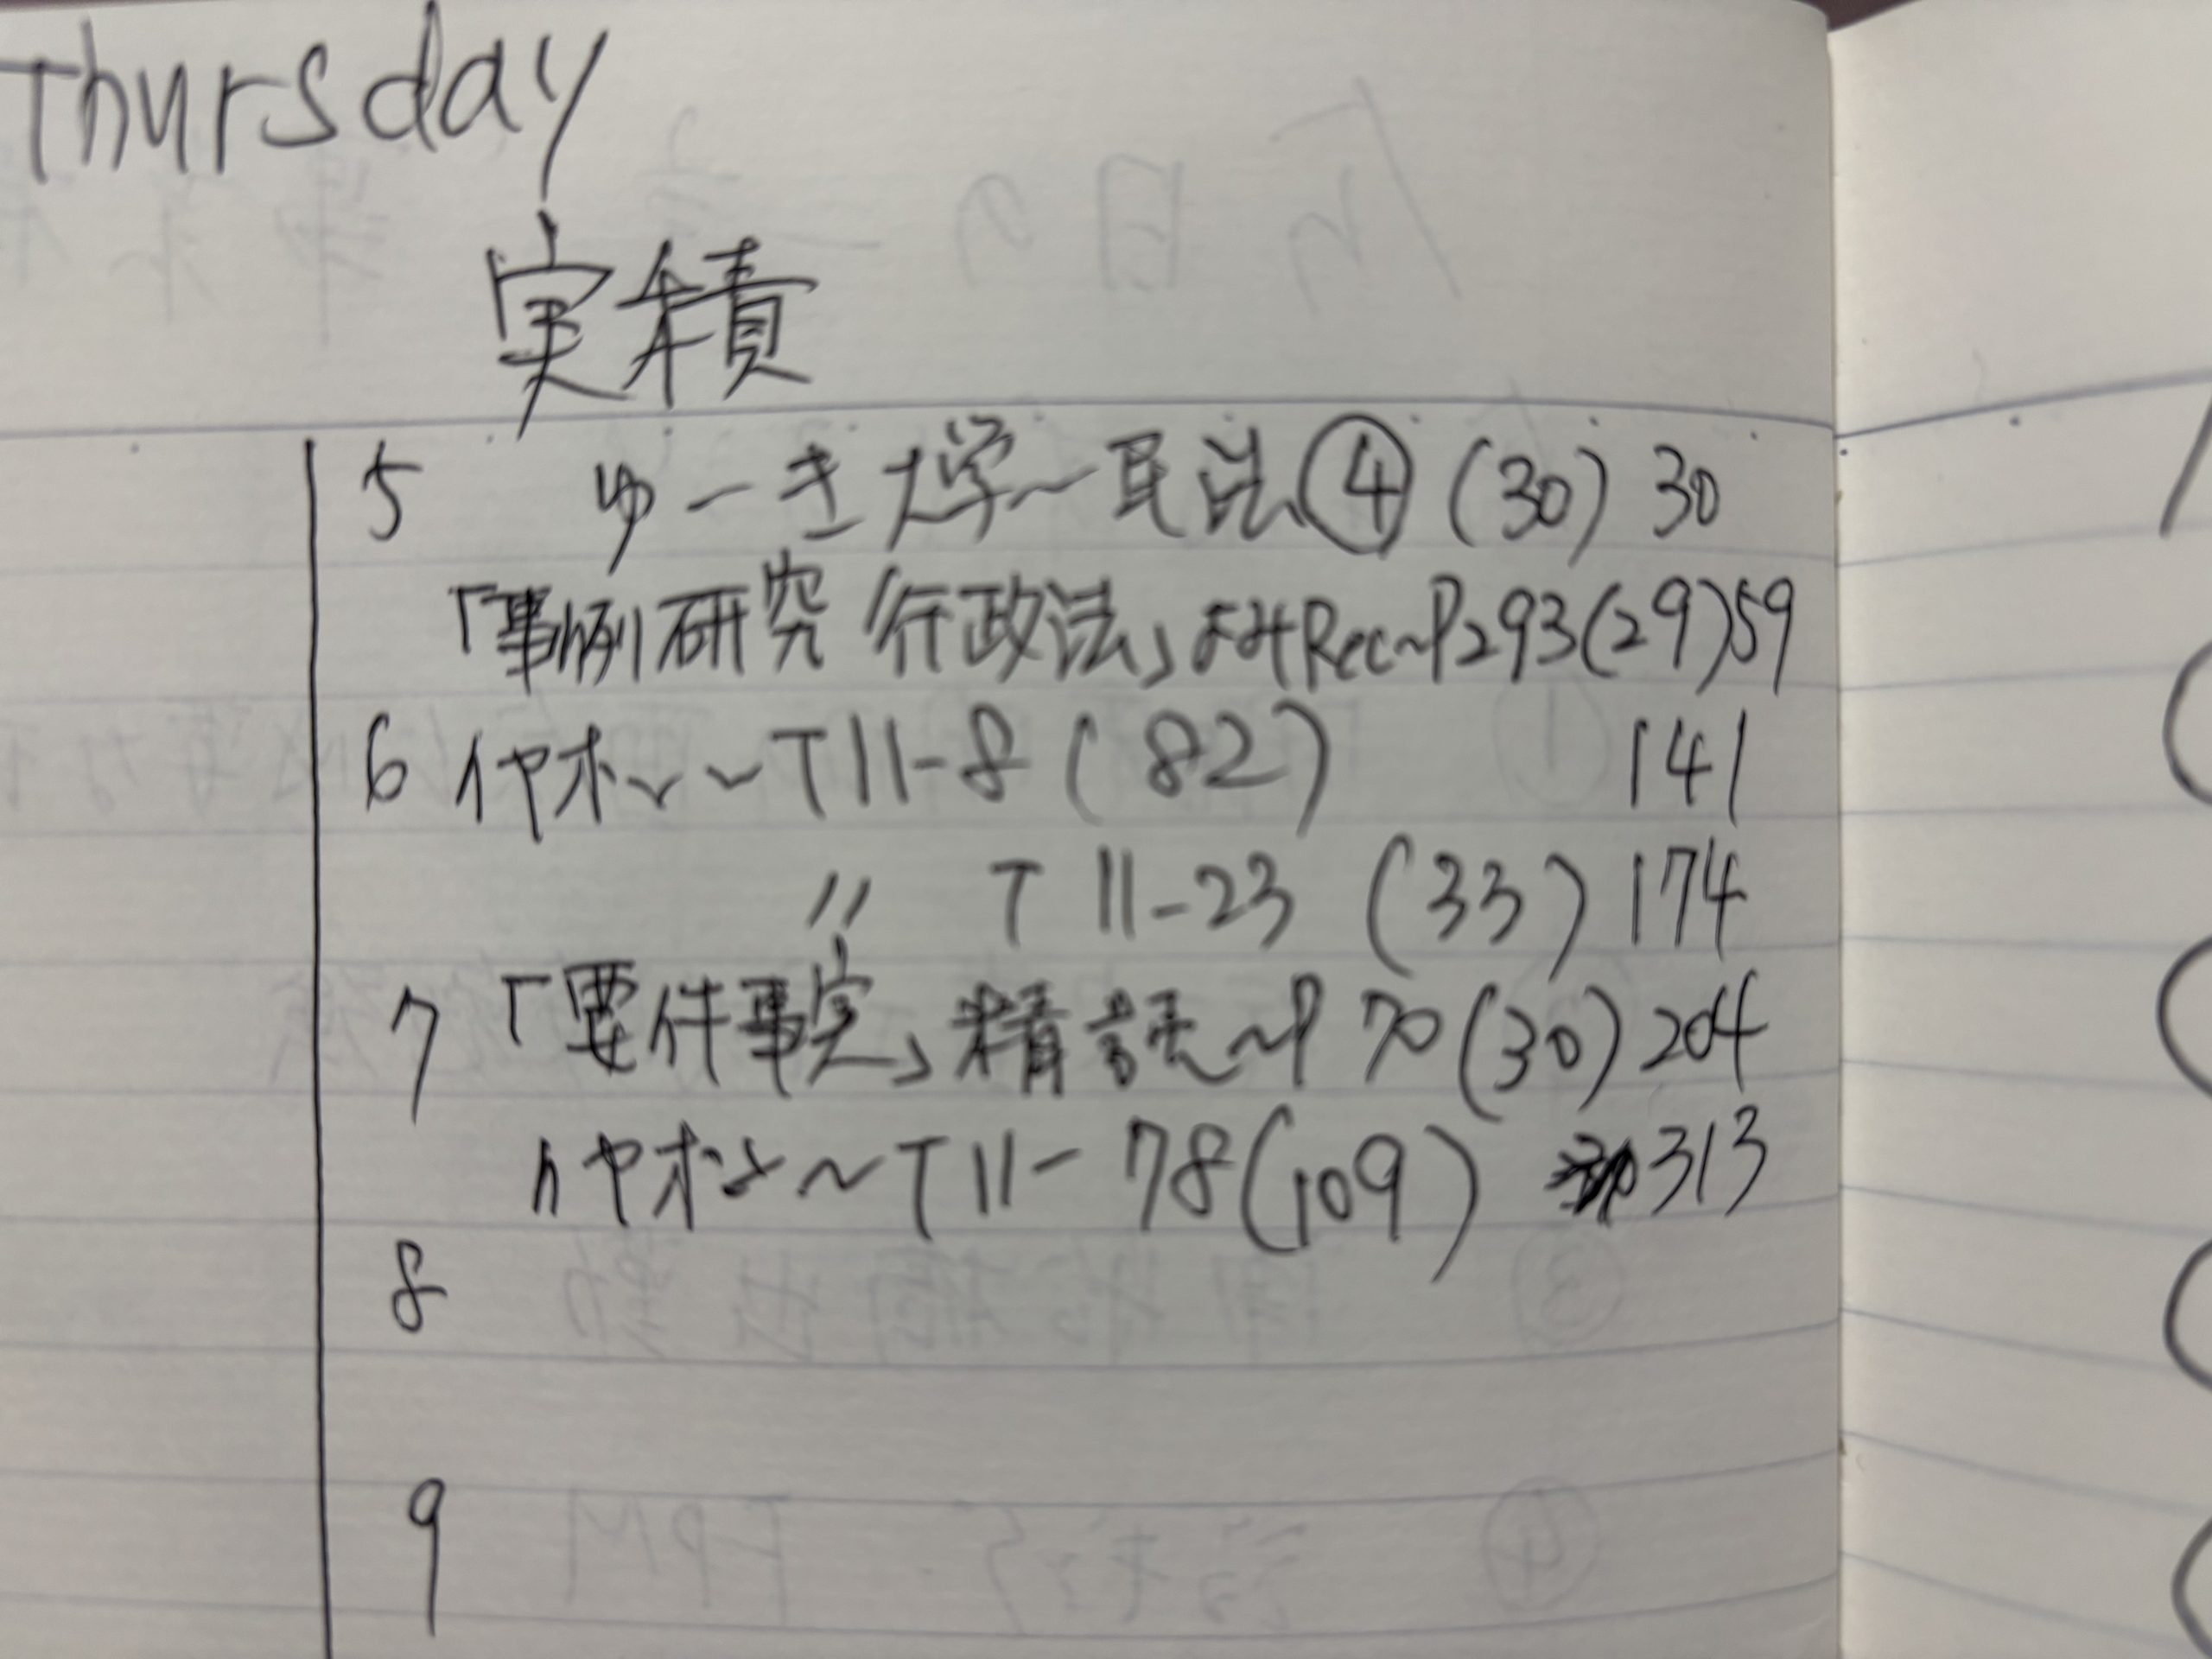 Thursday
実積
5 ゆーき大学〜民法④(30) 30
「事例研究 行政法」よみRec〜P293(29)59
6 イヤホン〜T11-8(82) 141
〃 T11-23 (33) 174
7 「要件事実」精読〜P70(30)204
イヤホン〜T11-78(109) 313
8
9